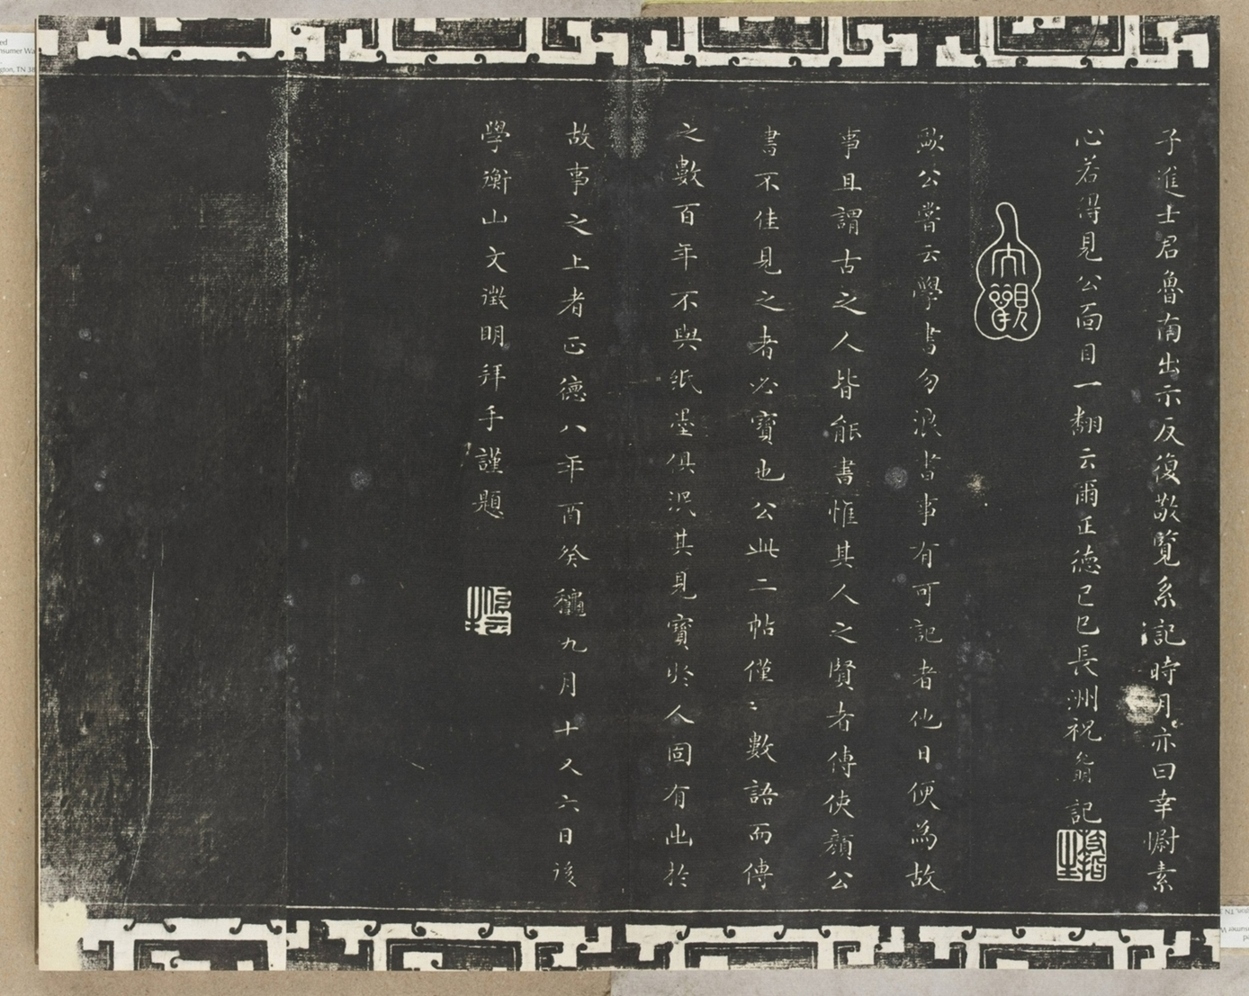 子進士君魯南出示反復敬覽系記時月亦曰幸慰素
心若得見公面目一翻云爾正德己巳長洲祝允明記
大觀
歐公嘗云學書勿浪書事有可記者他日便為故
事且謂古之人皆能書惟其人之賢者傳使顏公
書不佳見之者必寶也公此二帖僅〻數語而傳
之數百年不與紙墨俱泯其見寶於人固有出於
故事之上者正德八年酉癸龝九月十又六日後
學衡山文徵明拜手謹題
停云